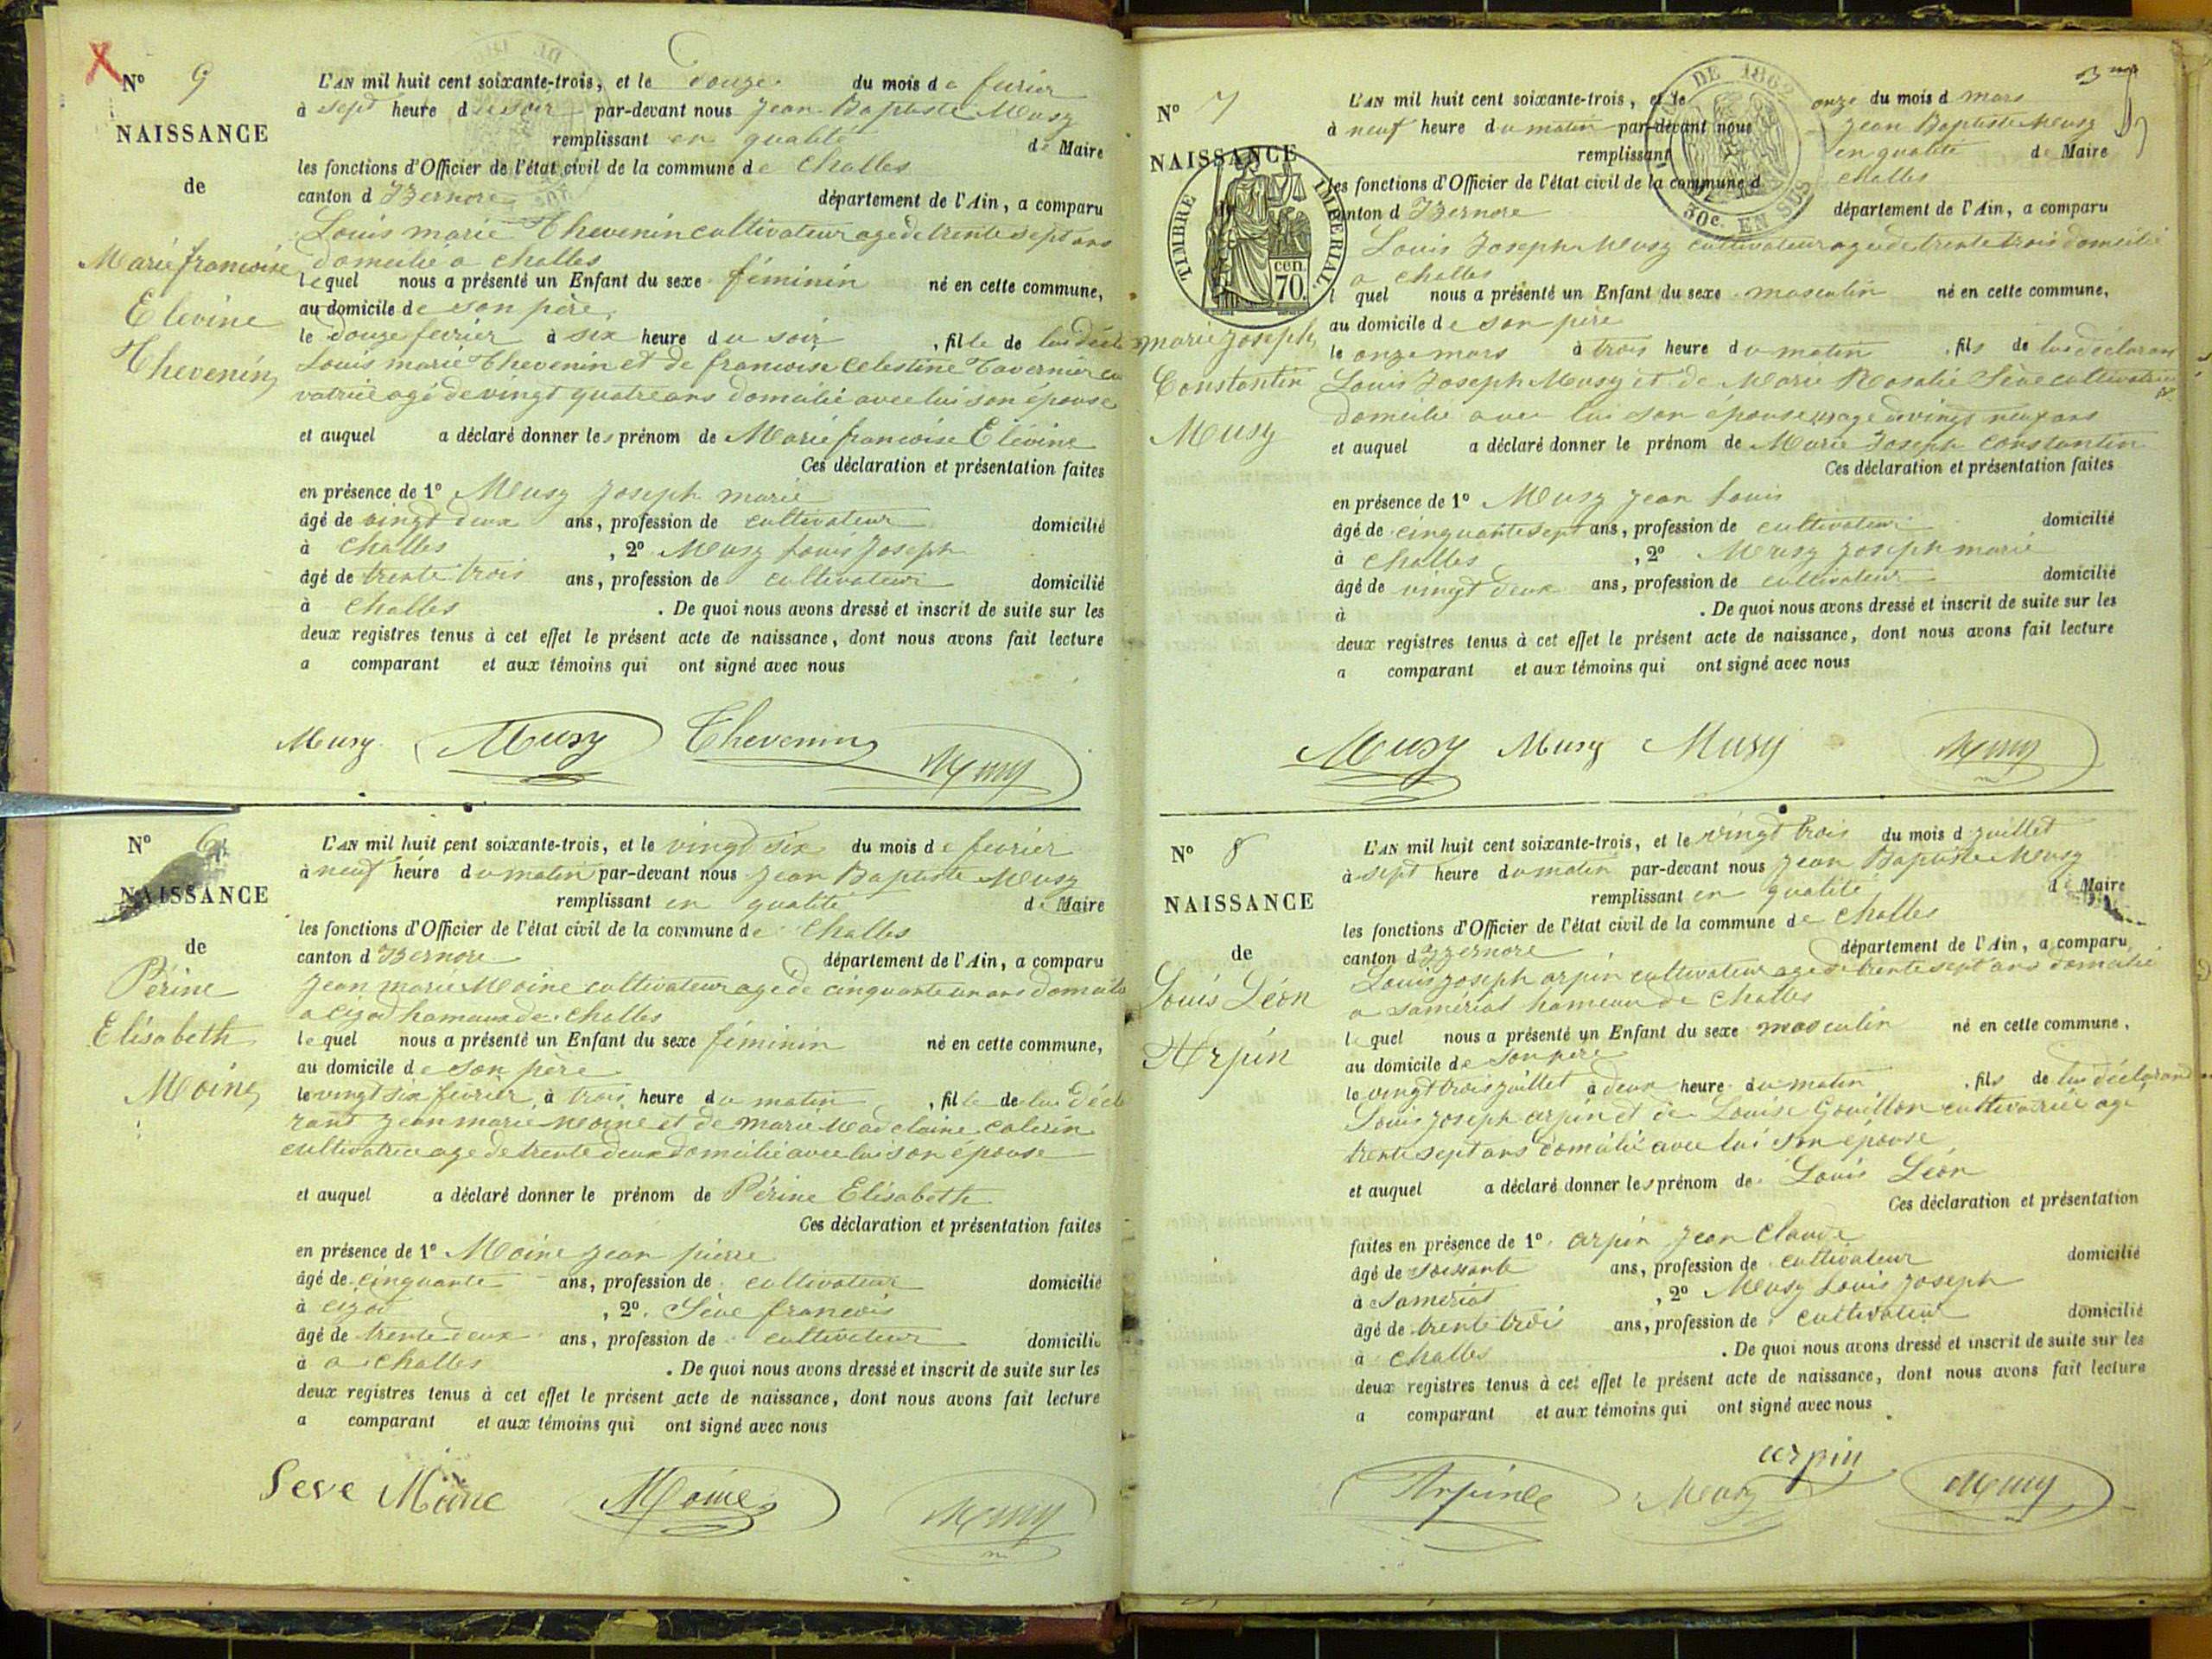 N° 9
NAISSANCE
de
Marie francoise
Elevine
Thevenin
L'AN mil huit cent soixante-trois, et le douze du mois de fevrier
à sept heure du soir par-devant nous Jean Baptiste Musy
remplissant en qualité de Maire
les fonctions d'Officier de l'état civil de la commune de Challes
canton d'Izernore département de l'Ain, a comparu
Louis marie Thevenin cultivateur age de trente sept ans
domicilié a challes
lequel nous a présenté un Enfant du sexe féminin né en cette commune,
au domicile de son père,
le douze fevrier à six heure du soir, fille de lui décla
Louis marie Thevenin et de francoise Celestine Tavernier cu
vatrice agé de vingt quatre ans domicilié avec lui son épouse
et auquel a déclaré donner les prénom de Marie francoise Elévine
Ces déclaration et présentation faites
en présence de 1° Musy Joseph marie
âgé de vingt deux ans, profession de cultivateur domicilié
à Challes, 2° Musy Louis Joseph
âgé de trente trois ans, profession de cultivateur domicilié
à Challes. De quoi nous avons dressé et inscrit de suite sur les
deux registres tenus à cet effet le présent acte de naissance, dont nous avons fait lecture
a comparant et aux témoins qui ont signé avec nous
Musy Musy Thevenin Musy
N° 6
NAISSANCE
de
Périne
Elisabeth
Moine
L'AN mil huit cent soixante-trois, et le vingt six du mois de fevrier
à neuf heure du matin par-devant nous Jean Baptiste Musy
remplissant en qualité de Maire
les fonctions d'Officier de l'état civil de la commune de Challes
canton d'Izernore département de l'Ain, a comparu
Jean marie Moine cultivateur agé de cinquante un ans domicilié
a cizod hameau de challes
lequel nous a présenté un Enfant du sexe féminin né en cette commune,
au domicile de son père
le vingt six fevrier à trois heure du matin, fille de lui décla
rant Jean marie Moine et de marie Madelaine
cultivatrice age de trente deux domicilié avec lui son épouse
et auquel a déclaré donner le prénom de Périne Elisabeth
Ces déclaration et présentation faites
en présence de 1° Moine Jean pierre
âgé de cinquante ans, profession de cultivateur domicilié
à cizod, 2°. Sève francois
âgé de trente deux ans, profession de cultivateur domicilié
à a challes. De quoi nous avons dressé et inscrit de suite sur les
deux registres tenus à cet effet le présent acte de naissance, dont nous avons fait lecture
a comparant et aux témoins qui ont signé avec nous
Seve Moine Moine Musy
N° 7
NAISSANCE
TIMBRE IMPERIAL
cen. 70.
DE 1862
30c. EN SUS
marie Joseph
Constantin
Musy
L'AN mil huit cent soixante-trois, et le onze du mois d mars
à neuf heure du matin par-devant nous Jean Baptiste Musy
remplissant en qualité de Maire
les fonctions d'Officier de l'état civil de la commune d challes
canton d Izernore département de l'Ain, a comparu
Louis Joseph Musy cultivateur age de trente trois domicilié
a challes
l quel nous a présenté un Enfant du sexe masculin né en cette commune,
au domicile de son père
le onze mars à trois heure du matin, fils de lui déclarant
Louis Joseph Musy et de Marie Rosalie Sève cultivatrice
domicilié avec lui son épouse age de vingt neuf ans
et auquel a déclaré donner le prénom de Marie Joseph Constantin
Ces déclaration et présentation faites
en présence de 1° Musy Jean Louis
âgé de cinquante sept ans, profession de cultivateur domicilié
à Challes, 2° Musy Joseph marie
âgé de vingt deux ans, profession de cultivateur domicilié
à. De quoi nous avons dressé et inscrit de suite sur les
deux registres tenus à cet effet le présent acte de naissance, dont nous avons fait lecture
a comparant et aux témoins qui ont signé avec nous
Musy Musy Musy Musy
N° 8
NAISSANCE
de
Louis Léon
Arpin
L'AN mil huit cent soixante-trois, et le vingt trois du mois d juillet
à sept heure du matin par-devant nous Jean Baptiste Musy
remplissant en qualité de Maire
les fonctions d'Officier de l'état civil de la commune de Challes
canton d Izernore département de l'Ain, a comparu
Louis joseph arpin cultivateur age de trente sept ans domicilié
a samériat hameau de Challes
l quel nous a présenté un Enfant du sexe masculin né en cette commune,
au domicile de son père
le vingt trois juillet à deux heure du matin, fils de lui déclarant
Louis joseph arpin et de Louise Gouillon cultivatrice age
trente sept ans domicilié avec lui son épouse
et auquel a déclaré donner les prénom de Louis Léon
Ces déclaration et présentation
faites en présence de 1° arpin Jean Claude
âgé de soixante ans, profession de cultivateur domicilié
à Samériat, 2° Musy Louis Joseph
âgé de trente trois ans, profession de cultivateur domicilié
à Challes. De quoi nous avons dressé et inscrit de suite sur les
deux registres tenus à cet effet le présent acte de naissance, dont nous avons fait lecture
a comparant et aux témoins qui ont signé avec nous
arpin
Musy Musy